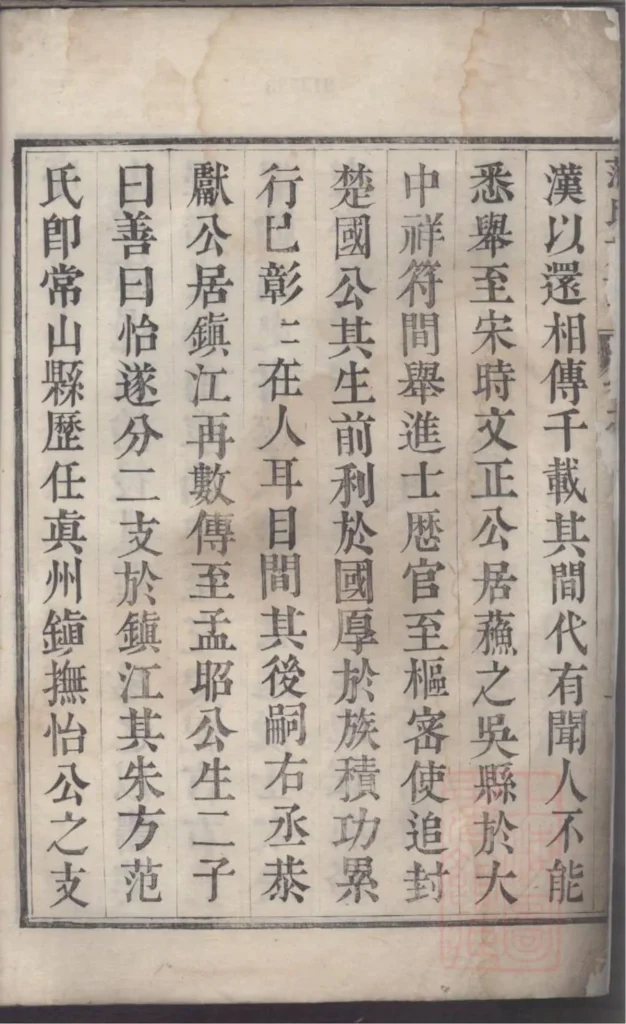 漢以還相傳千載其間代有聞人不能
悉舉至宋時文正公居蘓之吳縣於大
中祥符間舉進士歷官至樞密使追封
楚國公其生前利於國厚於族積功累
行已彰〻在人耳目間其後嗣右丞恭
獻公居鎮江再數傳至孟昭公生二子
曰善曰怡遂分二支於鎮江其朱方范
氏卽常山縣歷任眞州鎭撫怡公之支